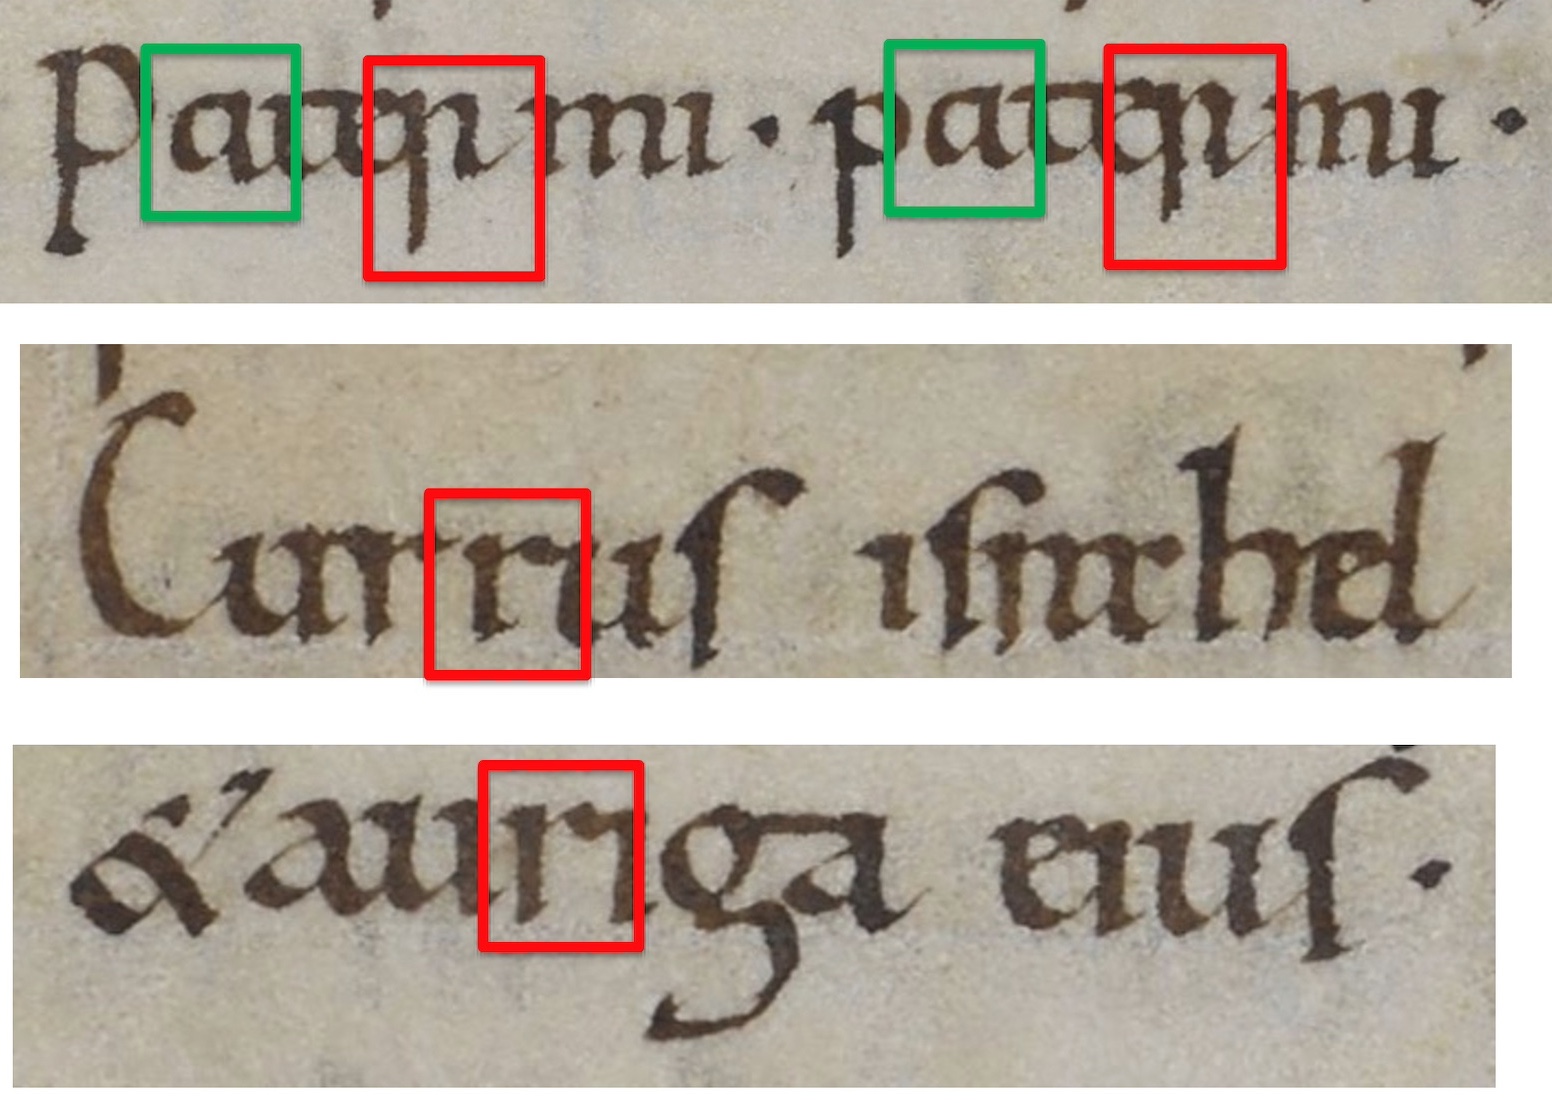 Pater mi · pater mi ·
Currus israhel
& auriga eius ·